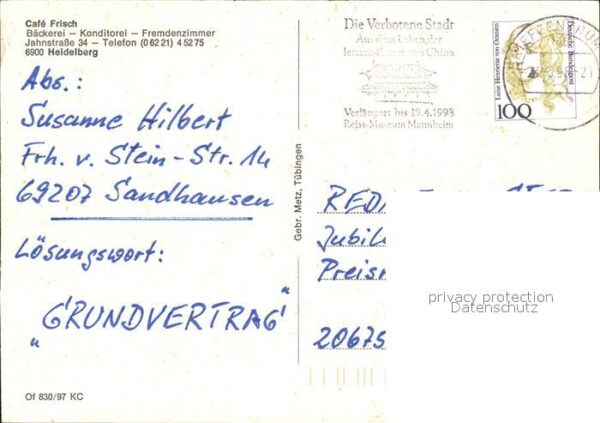 Café Frisch
Bäckerei – Konditorei – Fremdenzimmer
Jahnstraße 34 – Telefon (06221) 45275
6900 Heidelberg
Abs.:
Susanne Hilbert
Frh. v. Stein-Str. 14
69207 Sandhausen
Lösungswort:
„GRUNDVERTRAG“
Of 830/97 KC
Gebr. Metz, Tübingen
Die Verbotene Stadt
Aus dem Leben der
letzten Kaiser von China
Verlängert bis 19.4.1998
Reiss-Museum Mannheim
Deutsche Bundespost
Luise Henriette von Oranien
100
Jubil
20675
privacy protection
Datenschutz